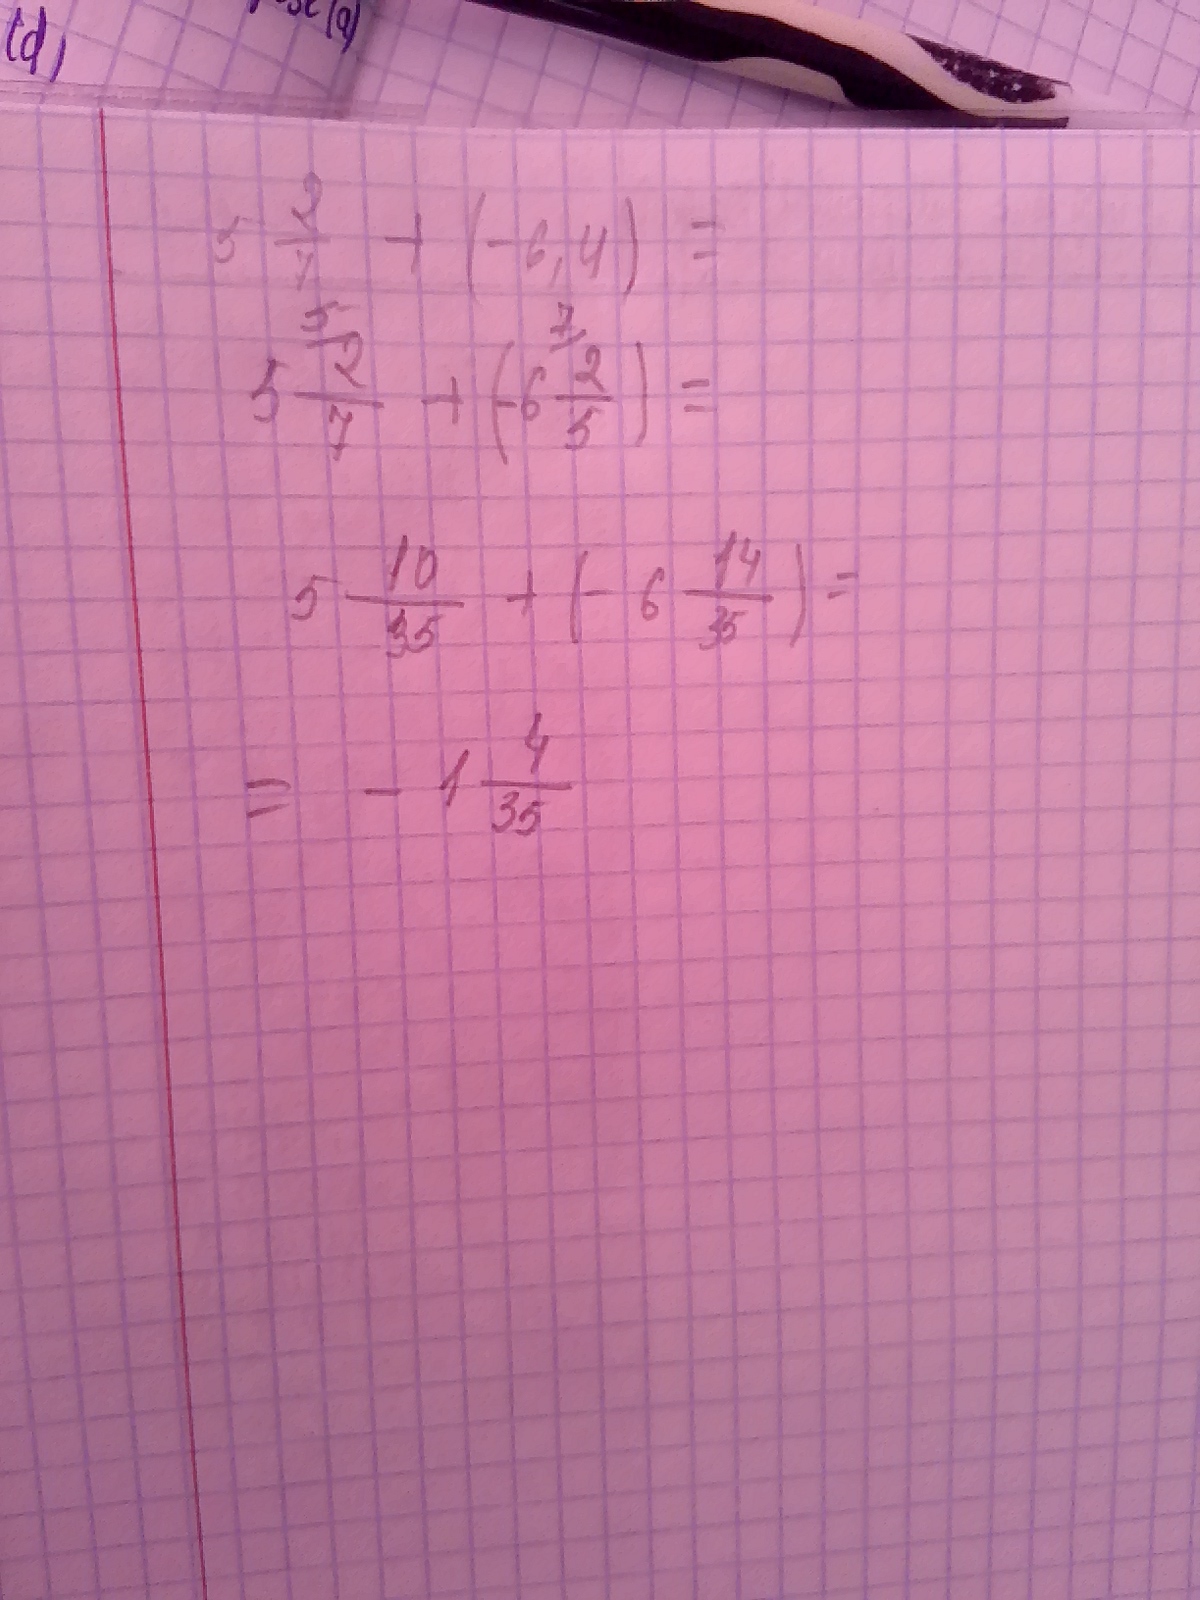 (d)
5 2/7 + (-6,4) =
5 2/7 ⁵ + (-6 2/5 ⁷) =
5 10/35 + (- 6 14/35) =
= - 1 4/35